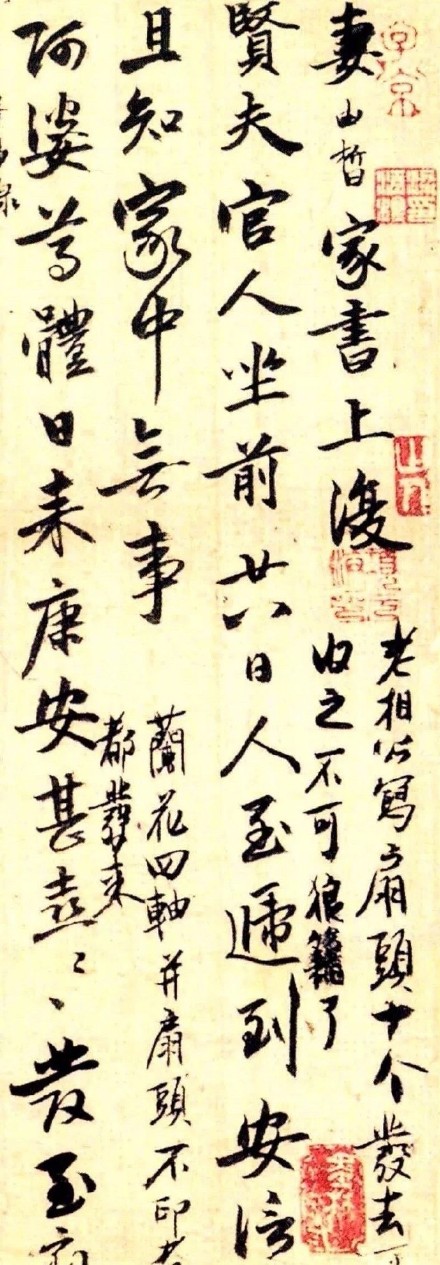 妻山皙家書上復
老相公寫扇頭十个發去可
收之不可狼籍了
賢夫官人坐前廿六日人至遞到安信
且知家中無事
蘭花四軸并扇頭不印者
都發来
阿婆尊體日来康安甚喜〻發至